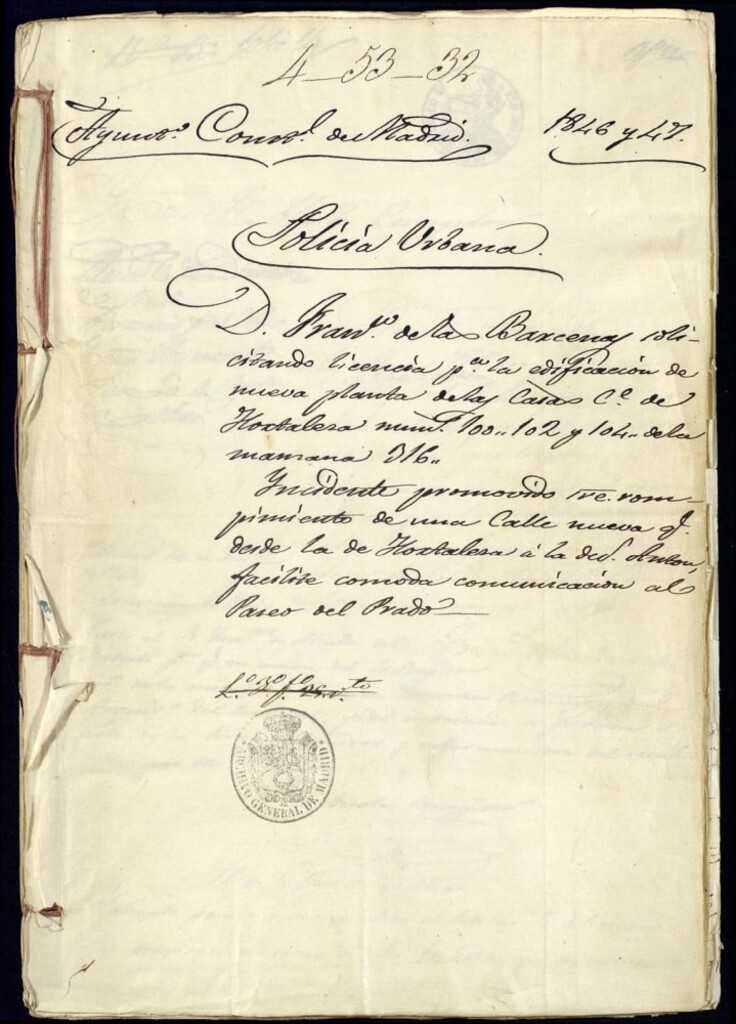 4-53-32
Ayuntº. Constl. de Madrid. 1846 y 47.
Policia Urbana.
D. Franco. de las Barcenas soli-
citando licencia pa. la edificación de
nueva planta de las Casas Ce. de
Hortaleza num.s 100.. 102 y 104.. de la
manzana 316..
Incidente promovido sre. rom-
pimiento de una Calle nueva q.e
desde la de Hortaleza á la de Sn. Anton,
facilite comoda comunicacion al
Paseo del Prado
ARCHIVO GENERAL DE MADRID